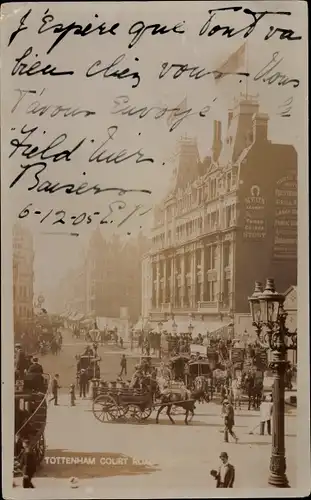 J'Espère que Tout va
bien chez vous. Vous
T'avons Envoyé
Field hier.
Baisers
6-12-05 E.P.
TOTTENHAM COURT ROAD